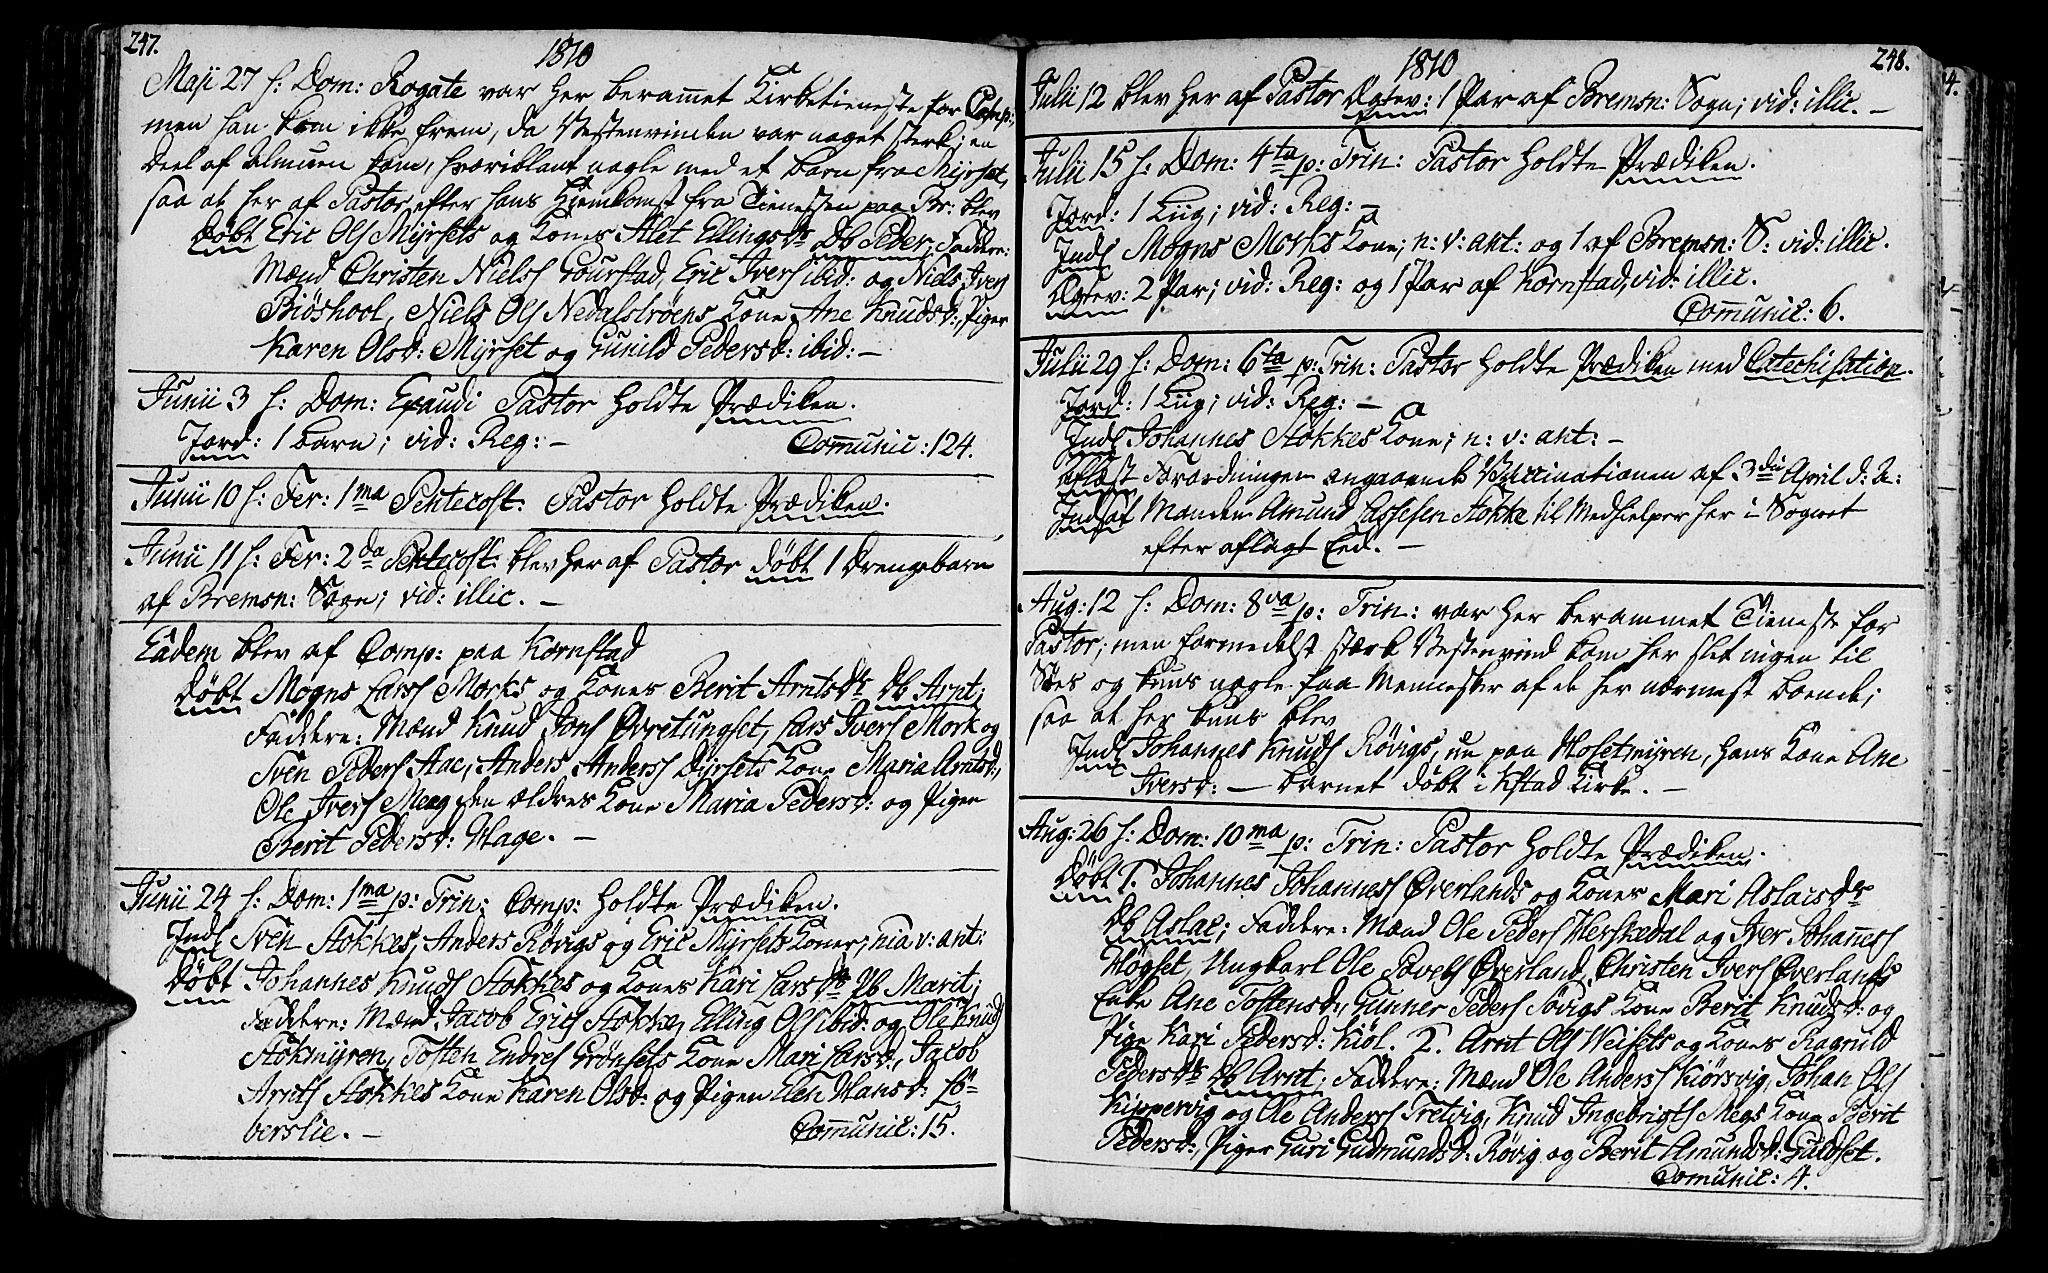 247.
1810
Maji 27 s: Dom: Rogate var her beramet Kirketieneste for Comp:,
men han kom ikke frem, da Vestenvinden var noget sterk; en
Deel af Almuen kom, hvoriblant nogle med et barn fra Myrset,
saa at her af Pastor efter hans Hiemkomst fra Tienesten paa Br: blev
Döbt Eric Ols Myrsets og Kones Alet Ellingsdr Db Peder; Faddere:
Mænd Christen Niels Gourstad, Eric Ivers ibid: og Niels Ivers
Biöskool, Niels Ols Nedalströens Kone Ane Knudsd:, Piger
Karen Olsd: Myrset og Gunild Pedersd: ibid: –
Junii 3 s: Dom: Exaudi Pastor holdte Prædiken.
Jord: 1 barn; vid: Reg: – Comunic: 124.
Junii 10 s: Fer: 1ma Pentecost: Pastor holdte Prædiken.
Junii 11 s: Fer: 2da Pentecost: blev her af Pastor döbt 1 Drengebarn
af Bremsn: Sogn; vid: illic. –
Eadem blev af Comp: paa Kornstad
döbt Mogns Lars Morks og Kones Berit Arntsdr Db Arnt;
Faddere: Mænd Knud Jons Övretungset, Lars Ivers Mork og
Sven Peders Aae, Anders Anders Dyrsets Kone Maria Arntsd:,
Ole Ivers Meeg den ældres Kone Maria Pedersd: og Pigen
Berit Pedersd: Hage. –
Junii 24 s: Dom: 1ma p: Trin: Comp: holdte Prædiken.
Inds Sven Stokkes, Anders Rövigs og Eric Myrsets Koner; nia v: ant:
Döbt Johannes Knuds Stokkes og Kones Kari Larsdr Db Marit;
Faddere: Mænd Jacob Erics Stokke, Elling Ols ibid: og Ole Knuds
Stokmyren, Tosten Endres Grönsets Kone Mari Larsd:, Jacob
Arnts Stokkes Kone Karen Olsd: og Pigen Elen Hansd: Lö-
berslie. – Comunic: 15.
248.
1810
Julii 12 blev her af Pastor Ægtev: 1 Par af Bremsn: Sogn; vid: illic. –
Julii 15 s: Dom: 4ta p: Trin: Pastor holdte Prædiken.
Jord: 1 Liig; vid: Reg: –
Inds Mogns Morks Kone; n: v: ant: og 1 af Bremsn: S: vid: illic.
Ægtev: 2 Par; vid: Reg: og 1 Par af Kornstad, vid: illic.
Comunic: 6.
Julii 29 s: Dom: 6ta p: Trin: Pastor holdte Prædiken med Catechisation.
Jord: 1 Liig; vid: Reg: –
Inds Johannes Stokkes Kone; n: v: ant: –
Aflæst Forordningen angaaende Vaccinationen af 3die April d: A:
Indsat Manden Amund Lassesen Stokke til Medhielper her i Sognet
efter aflagt Eed. –
Aug: 12 s: Dom: 8va p: Trin: var her berammet Tieneste for
Pastor; men formedelst stærk Vestenvind kom her slet ingen til
Søes og kuns nogle faa Mennesker af de her nærmest boende;
saa at her kuns blev
Inds Johannes Knuds Rövigs, nu paa Holetmyren, hans Kone Ane
Iversd: – barnet döbt i Kstad Kirke. –
Aug: 26 s: Dom: 10ma p: Trin: Pastor holdte Prædiken.
Döbt 1. Johannes Johannes Överlands og Kones Mari Aslacsdr
Db Aslac; Faddere: Mænd Ole Peders Herskedal og Iver Johannes
Högset, Ungkarl Ole Povels Överland, Christen Ivers Överlands
Enke Ane Tostensd:, Gunner Peders Sövigs Kone Berit Knudsd: og
Pige Kari Pedersd: Kiöl. 2. Arnt Ols Weisets og Kones Ragnild
Pedersdr Db Arnt; Faddere: Mænd Ole Anders Kiörsvig, Johan Ols
Kippervig og Ole Anders Tretvig, Knud Ingebrigts Megs Kone Berit
Pedersd:, Piger Guri Gudmundsd: Rövig og Berit Amundsd: Guldset.
Comunic: 4.